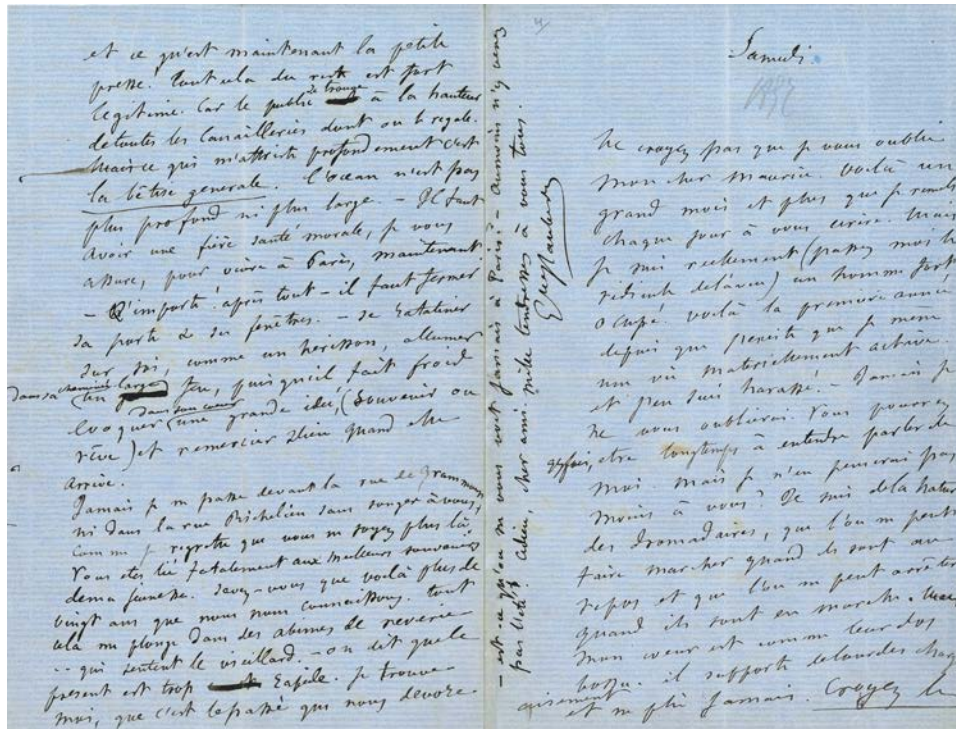 et ce qu'est maintenant la petite
presse! tout cela du reste est fort
legitime. Car le public se trouve à la hauteur
de toutes les Canailleries dont on le regale.
Mais ce qui m'attriste profondement c'est
la bêtise generale. l'océan n'est pas
plus profond ni plus large. – Il faut
avoir une fière santé morale, je vous
assure, pour vivre à Paris, maintenant.
– Qu'importe! après tout – il faut fermer
sa porte & ses fenêtres. – se ratatiner
sur soi, comme un herisson, allumer
dans sa cheminée un large feu, puisqu'il fait froid
evoquer dans son cœur une grande idée, (souvenir ou
rêve) et remercier Dieu quand elle
arrive.
Jamais je ne passe devant la rue de Grammont
ni dans la rue Richelieu sans songer à vous,
comme je regrette que vous ne soyez plus là,
Vous etes lié fatalement aux meilleurs souvenirs
de ma jeunesse. Savez-vous que voilà plus de
vingt ans que nous nous connaissons. tout
cela me plonge dans des abimes de reverie
-- qui sentent le vieillard. – on dit que le
present est trop rapide. je trouve –
moi, que c'est le passé qui nous devore –
– est-ce qu'on ne vous voit jamais à Paris? – aumoins n'y venez
pas l'été. adieu, cher ami. mille tendresses à vous tous.
Gve Flaubert
4
Samedi.
1857
Ne croyez pas que je vous oublie
mon cher Maurice. Voilà un
grand mois et plus que je remets
chaque jour à vous ecrire. Mais
je suis reellement (passez moi le
ridicule de l'aveu) un homme fort
occupé. voilà la premiere année
depuis que j'existe que je mene
une vie materiellement active.
et j'en suis harassé. – Jamais je
ne vous oublierai. Vous pourrez
quelquefois, etre longtemps à entendre parler de
moi. mais je n'en penserai pas
moins à vous? Je suis de la nature
des dromadaires, que l'on ne peut
faire marcher quand ils sont au
repos et que l'on ne peut arrêter
quand ils sont en marche. Mais
mon cœur est comme leur dos
bossu. il supporte de lourdes charges
aisement et ne plie jamais. Croyez le